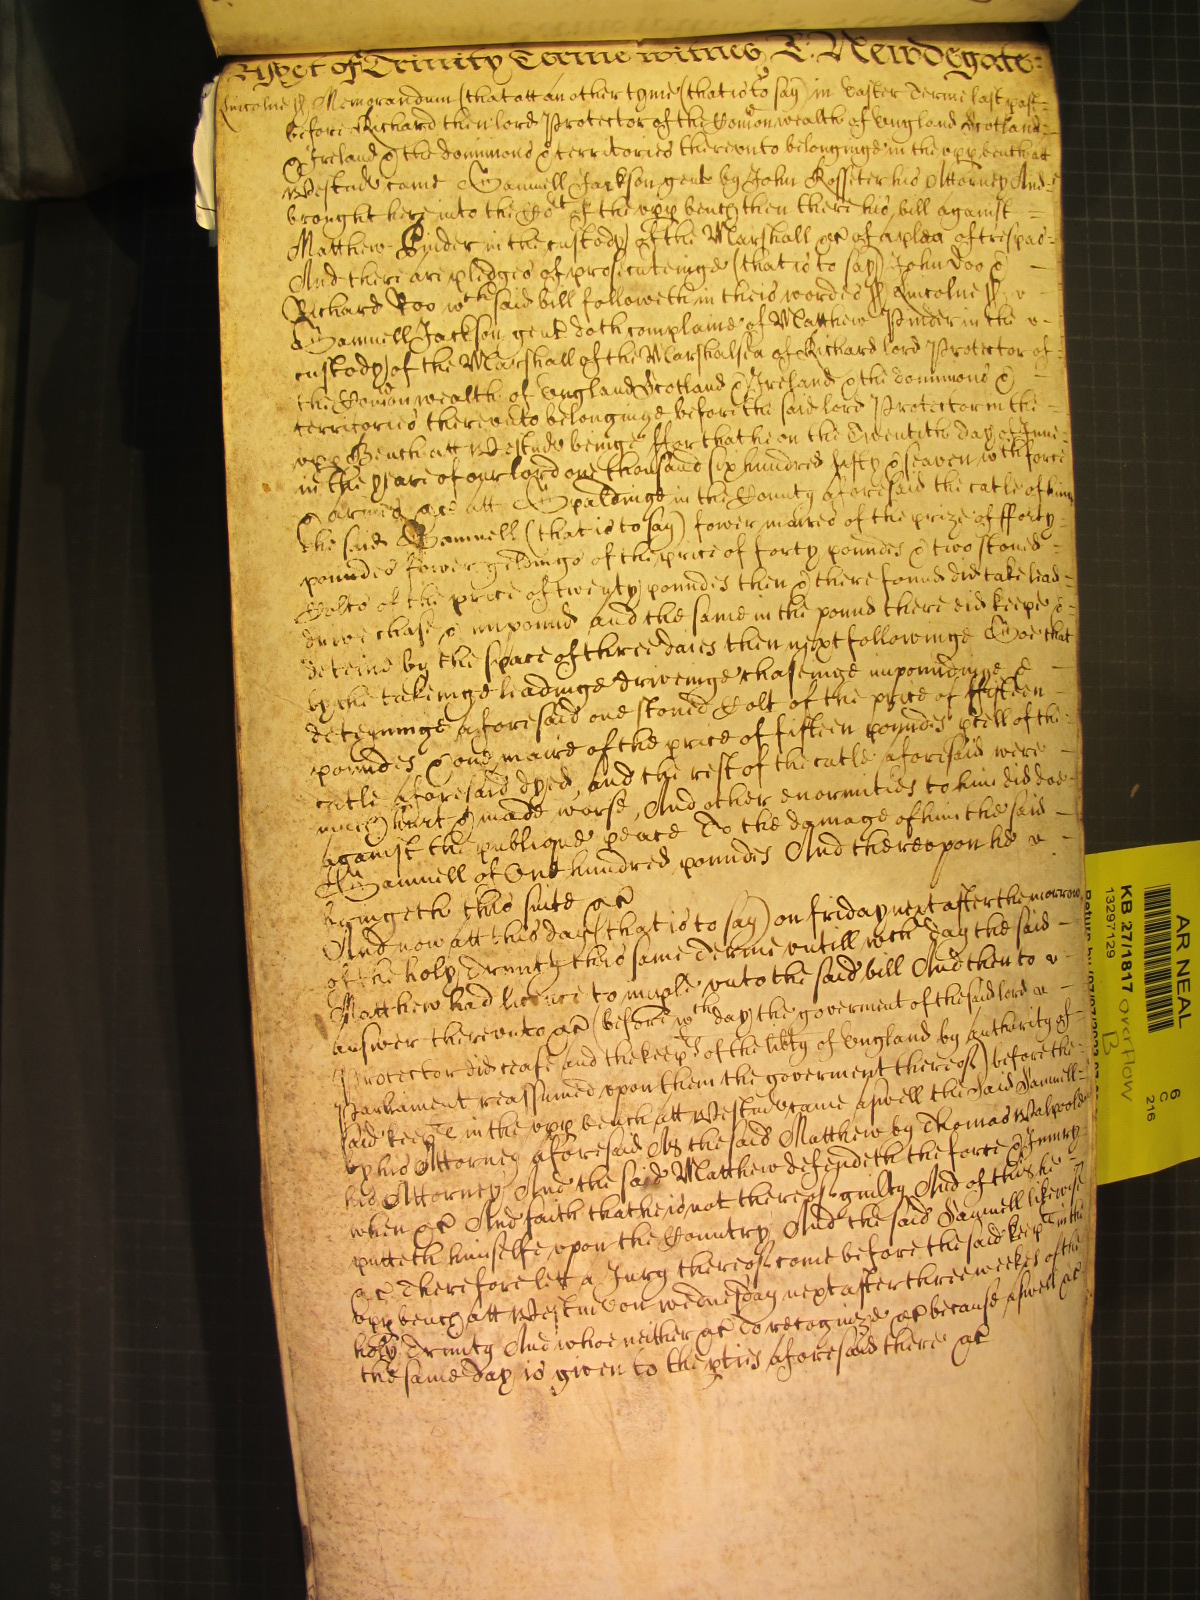 Yet of Trinity Terme witnes R: Newdegate
Lincolne ss Memorandum (that att another tyme (that is to say) in Easter Terme last past
before Richard then lord Protector of the Comonwealth of England Scotland
& Ireland & the dominions & territories thereunto belonginge in the upp bench att
Westmr came Samuell Jackson gent by John Rosseter his Attorney And
brought here into the Cort of the upp bench then there his bill against
Matthew Pinder in the custody of the Marshall &c of a plea of trespas
And there are pledges of prosecuteinge (that is to say) John Doo &
Richard Roo wch said bill followeth in theis wordes ss Lincolne ss
Samuell Jackson gent doth complaine of Matthew Pinder in the
custody of the Marshall of the Marshalsea of Richard lord Protector of
the Comonwealth of England Scotland & Ireland & the dominions &
territories thereunto belonginge before the said lord Protector in the
upp Bench att Westmr beinge ffor that he on the Twentith day of June
in the yeare of our lord one thousand six hundred fifty & seaven with force
& armes &c att Spaldinge in the County aforesaid the catle of him
the said Samuell (that is to say) fower maires of the prize of fforty
poundes fower geldings of the price of forty poundes & two stoned
Colts of the price of twenty poundes then & there found did take lead
drive chase & impound and the same in the pound there did keepe &
deteine by the space of three daies then next followinge Soe that
by the takeinge leadinge driveinge chaseinge impoundinge &
deteyninge aforesaid one stoned Colt of the price of ffifteen
poundes & one maire of the price of fifteen poundes pcell of the
catle aforesaid dyed, and the rest of the catle aforesaid were
much hurt & made worse, And other enormities to him did doe
against the publique peace To the damage of him the said
Samuell of One hundred poundes And thereupon he
bringeth this suite &c
And now att this day (that is to say) on friday next after the morrow
of the holy Trinity this same Terme untill wch day the said
Matthew had licence to imple unto the said bill And then to
answer thereunto &c (before wch day the goverment of the said lord
Protector did cease and the keeps of the libty of England by authority of
Parliament reassumed upon them the goverment thereof) before the
said keeps in the upp bench att Westmr came aswell the said Samuell
by his Attorney aforesaid As the said Matthew by Thomas Walpoole
his Attorney And the said Matthew defendeth the force & Iniury
when &c And saith that he is not thereof guilty And of this he
putteth himselfe upon the Countrey And the said Samuell likewise
&c Therefore lett a Jury thereof come before the said keeps in the
upp bench att Westmr on wednesday next after three weekes of the
holy Trinity And whoe neither &c To recognize &c because aswell &c
the same day is given to the pties aforesaid there &c
AR NEAL
6
C
216
KB 27/1817 overflow
13297129
B